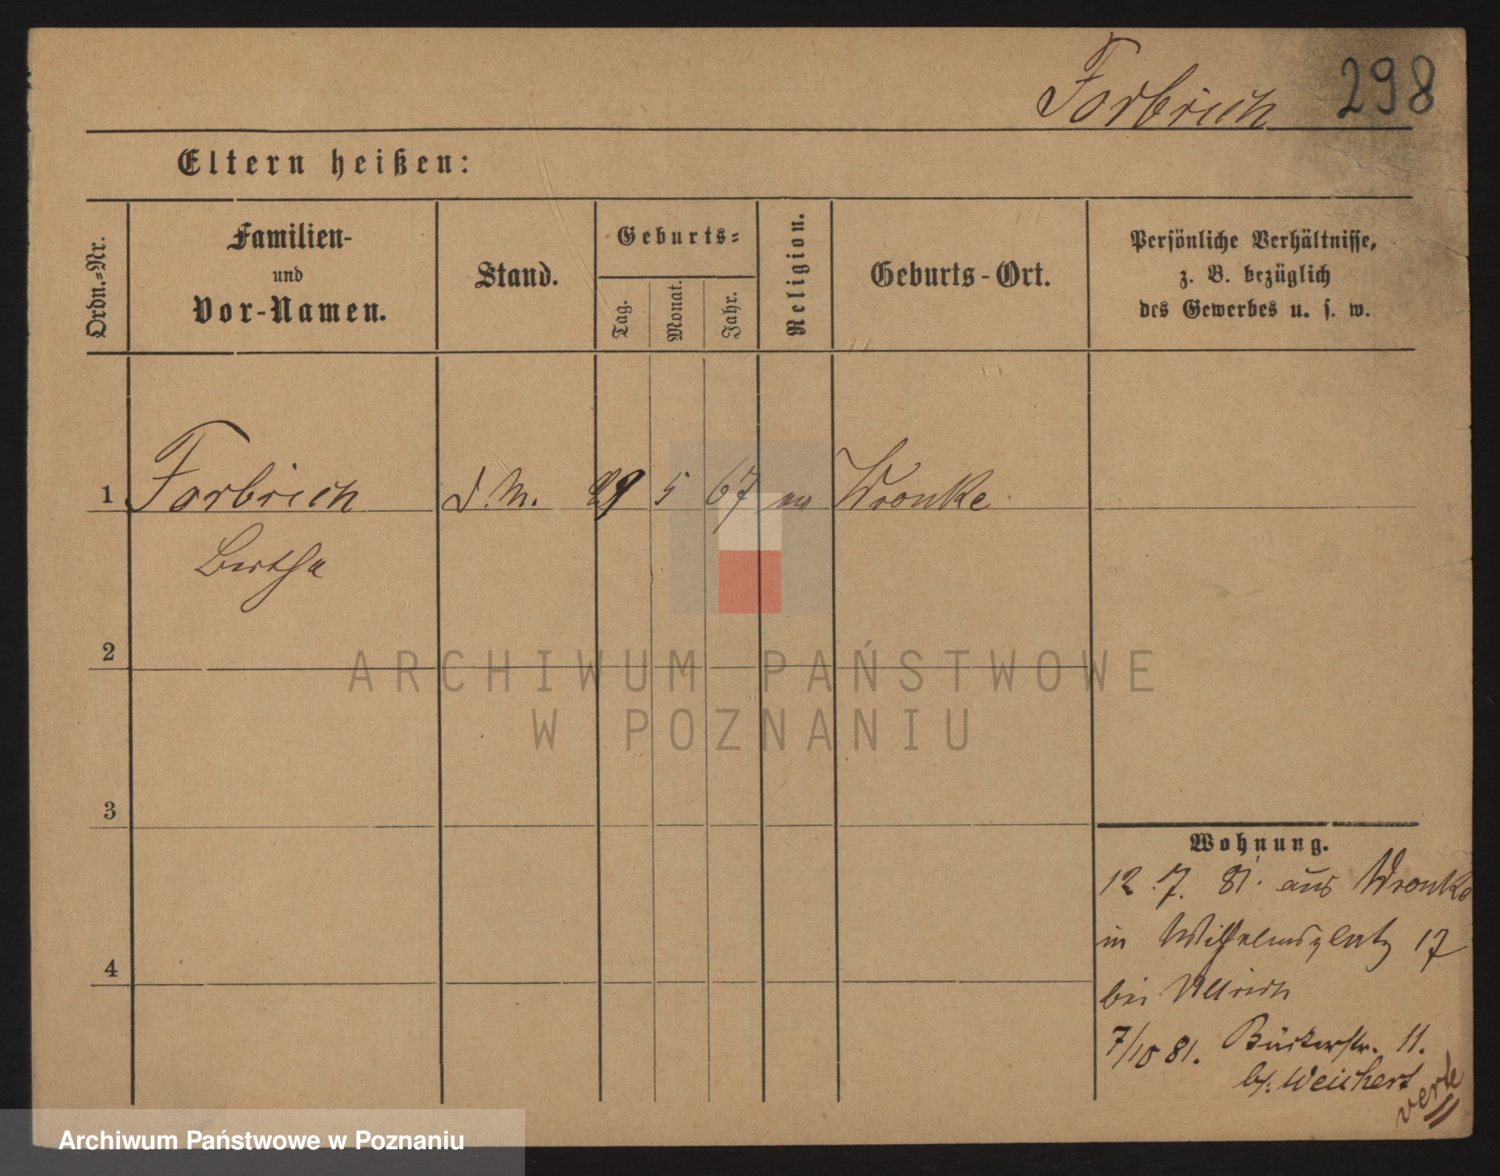 Forbrich 298
Eltern heißen:
Ordn.-Nr.
Familien-
und
Vor-Namen.
Stand.
Geburts-
Tag.
Monat.
Jahr.
Religion.
Geburts-Ort.
Persönliche Verhältnisse,
z. B. bezüglich
des Gewerbes u. s. w.
1 Forbrich d. M. 5 67 Wronke
Bertha
2
3
4
Wohnung.
12. 7. 81. aus Wronke
in Wilhelmsplatz 17
bei Ullrich
7/10 81. 11.
b/. Weichert
verte
ARCHIWUM PAŃSTWOWE
W POZNANIU
Archiwum Państwowe w Poznaniu